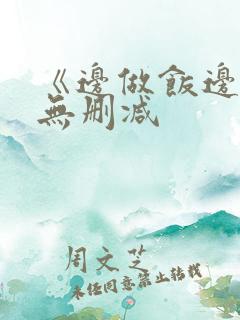 《邊做飯邊
無删减
周文芝
未经同意禁止转载